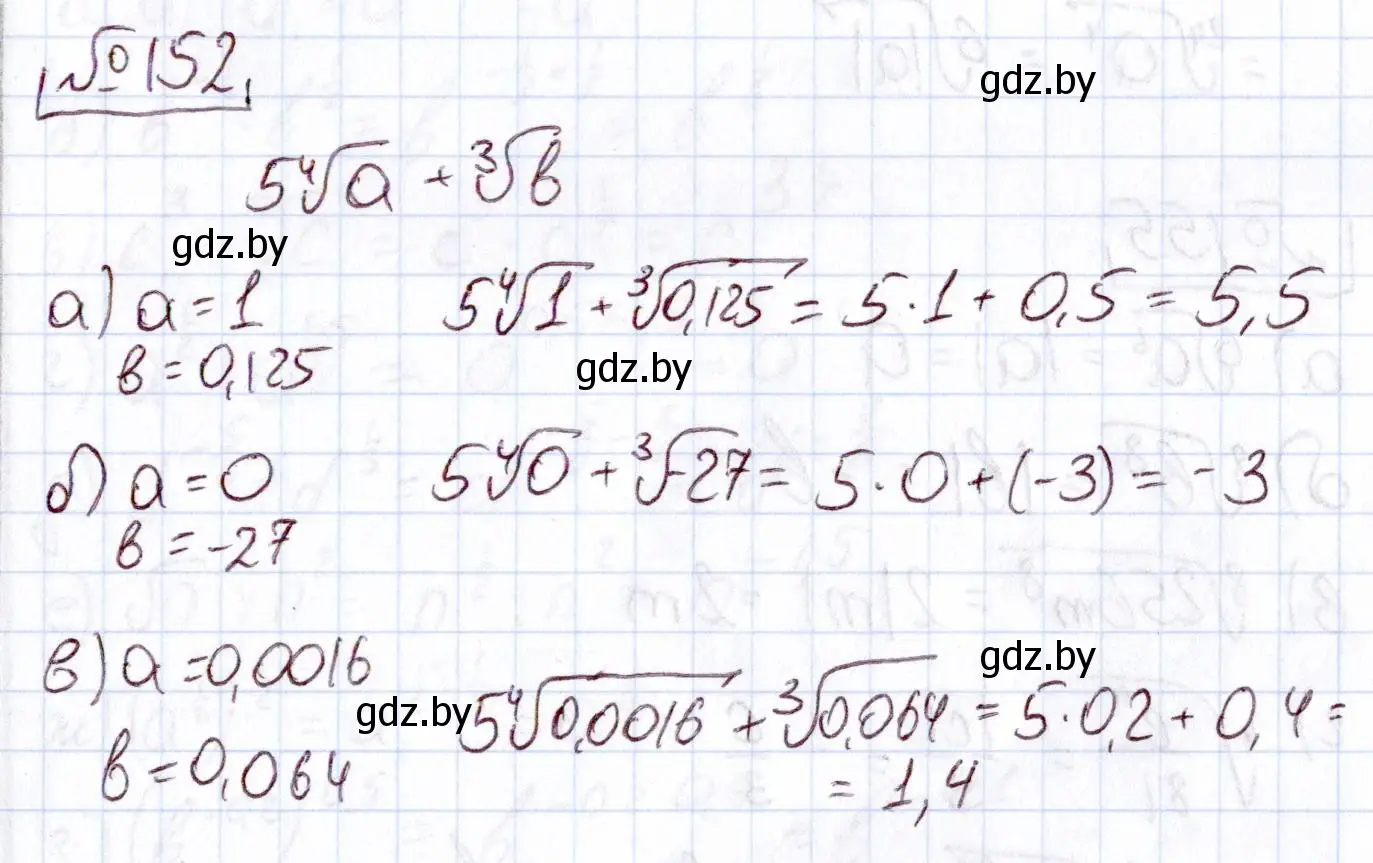 №152
gdz.by
5∜a + ∛в
gdz.by
а) a = 1
в = 0,125
5∜1 + ∛0,125 = 5·1 + 0,5 = 5,5
gdz.by
б) a = 0
в = -27
5∜0 + ∛-27 = 5·0 + (-3) = -3
в) a = 0,0016
в = 0,064
gdz.by
gdz.by
5∜0,0016 + ∛0,064 = 5·0,2 + 0,4 =
= 1,4